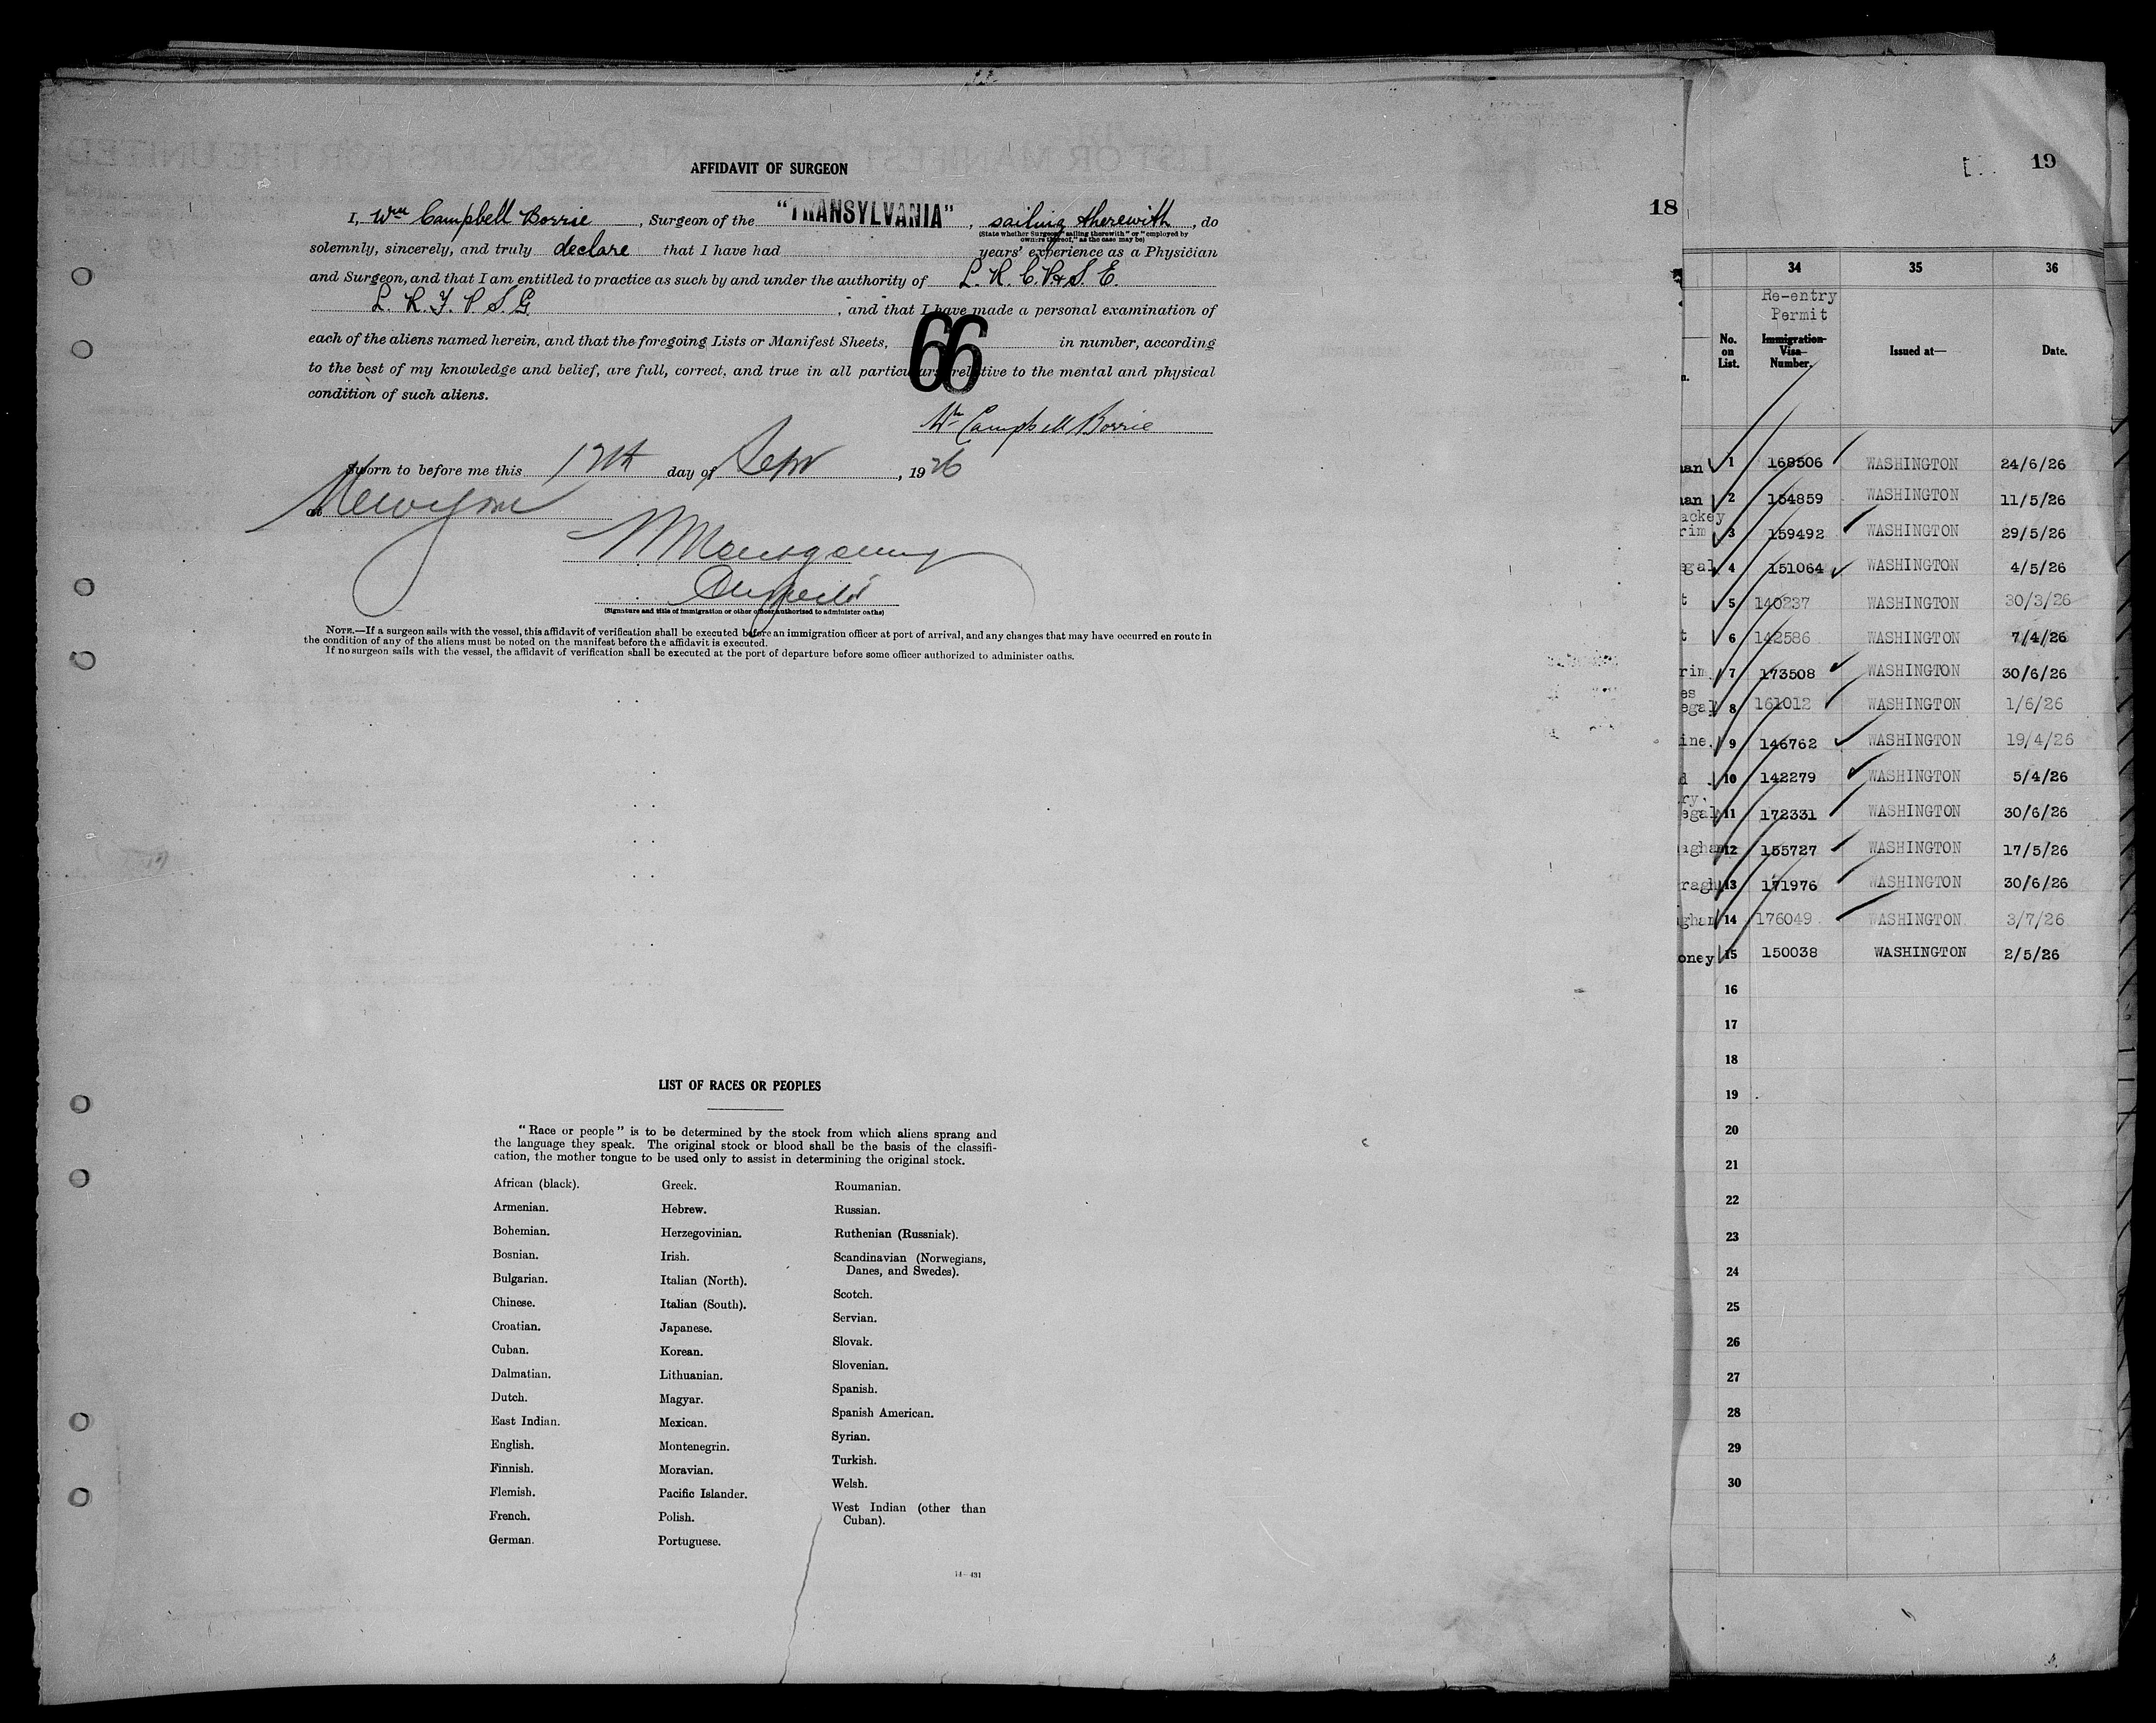 AFFIDAVIT OF SURGEON
I, Wm Campbell Borrie, Surgeon of the "TRANSYLVANIA", sailing therewith, do
(State whether Surgeon "sailing therewith" or "employed by
owners thereof," as the case may be)
solemnly, sincerely, and truly declare that I have had years' experience as a Physician
and Surgeon, and that I am entitled to practice as such by and under the authority of L. R. C. P. & S. E.
L. R. F. P. S. G. , and that I have made a personal examination of
each of the aliens named herein, and that the foregoing Lists or Manifest Sheets, 66 in number, according
to the best of my knowledge and belief, are full, correct, and true in all particulars relative to the mental and physical
condition of such aliens.
Wm Campbell Borrie
Sworn to before me this 12th day of Sept, 1926
at New York
Montgomery
Inspector
(Signature and title of immigration or other officer authorized to administer oaths)
NOTE.—If a surgeon sails with the vessel, this affidavit of verification shall be executed before an immigration officer at port of arrival, and any changes that may have occurred en route in
the condition of any of the aliens must be noted on the manifest before the affidavit is executed.
If no surgeon sails with the vessel, the affidavit of verification shall be executed at the port of departure before some officer authorized to administer oaths.
LIST OF RACES OR PEOPLES
"Race or people" is to be determined by the stock from which aliens sprang and
the language they speak. The original stock or blood shall be the basis of the classifi-
cation, the mother tongue to be used only to assist in determining the original stock.
African (black).
Armenian.
Bohemian.
Bosnian.
Bulgarian.
Chinese.
Croatian.
Cuban.
Dalmatian.
Dutch.
East Indian.
English.
Finnish.
Flemish.
French.
German.
Greek.
Hebrew.
Herzegovinian.
Irish.
Italian (North).
Italian (South).
Japanese.
Korean.
Lithuanian.
Magyar.
Mexican.
Montenegrin.
Moravian.
Pacific Islander.
Polish.
Portuguese.
Roumanian.
Russian.
Ruthenian (Russniak).
Scandinavian (Norwegians,
Danes, and Swedes).
Scotch.
Servian.
Slovak.
Slovenian.
Spanish.
Spanish American.
Syrian.
Turkish.
Welsh.
West Indian (other than
Cuban).
14—431
18
19
34 35 36
Re-entry
Permit
No. on List. Immigration Visa Number. Issued at— Date.
1 168506 WASHINGTON 24/6/26
2 154859 WASHINGTON 11/5/26
3 159492 WASHINGTON 29/5/26
4 151064 WASHINGTON 4/5/26
5 140237 WASHINGTON 30/3/26
6 142586 WASHINGTON 7/4/26
7 173508 WASHINGTON 30/6/26
8 161012 WASHINGTON 1/6/26
9 146762 WASHINGTON 19/4/26
10 142279 WASHINGTON 5/4/26
11 172331 WASHINGTON 30/6/26
12 155727 WASHINGTON 17/5/26
13 171976 WASHINGTON 30/6/26
14 176049 WASHINGTON 3/7/26
15 150038 WASHINGTON 2/5/26
16
17
18
19
20
21
22
23
24
25
26
27
28
29
30